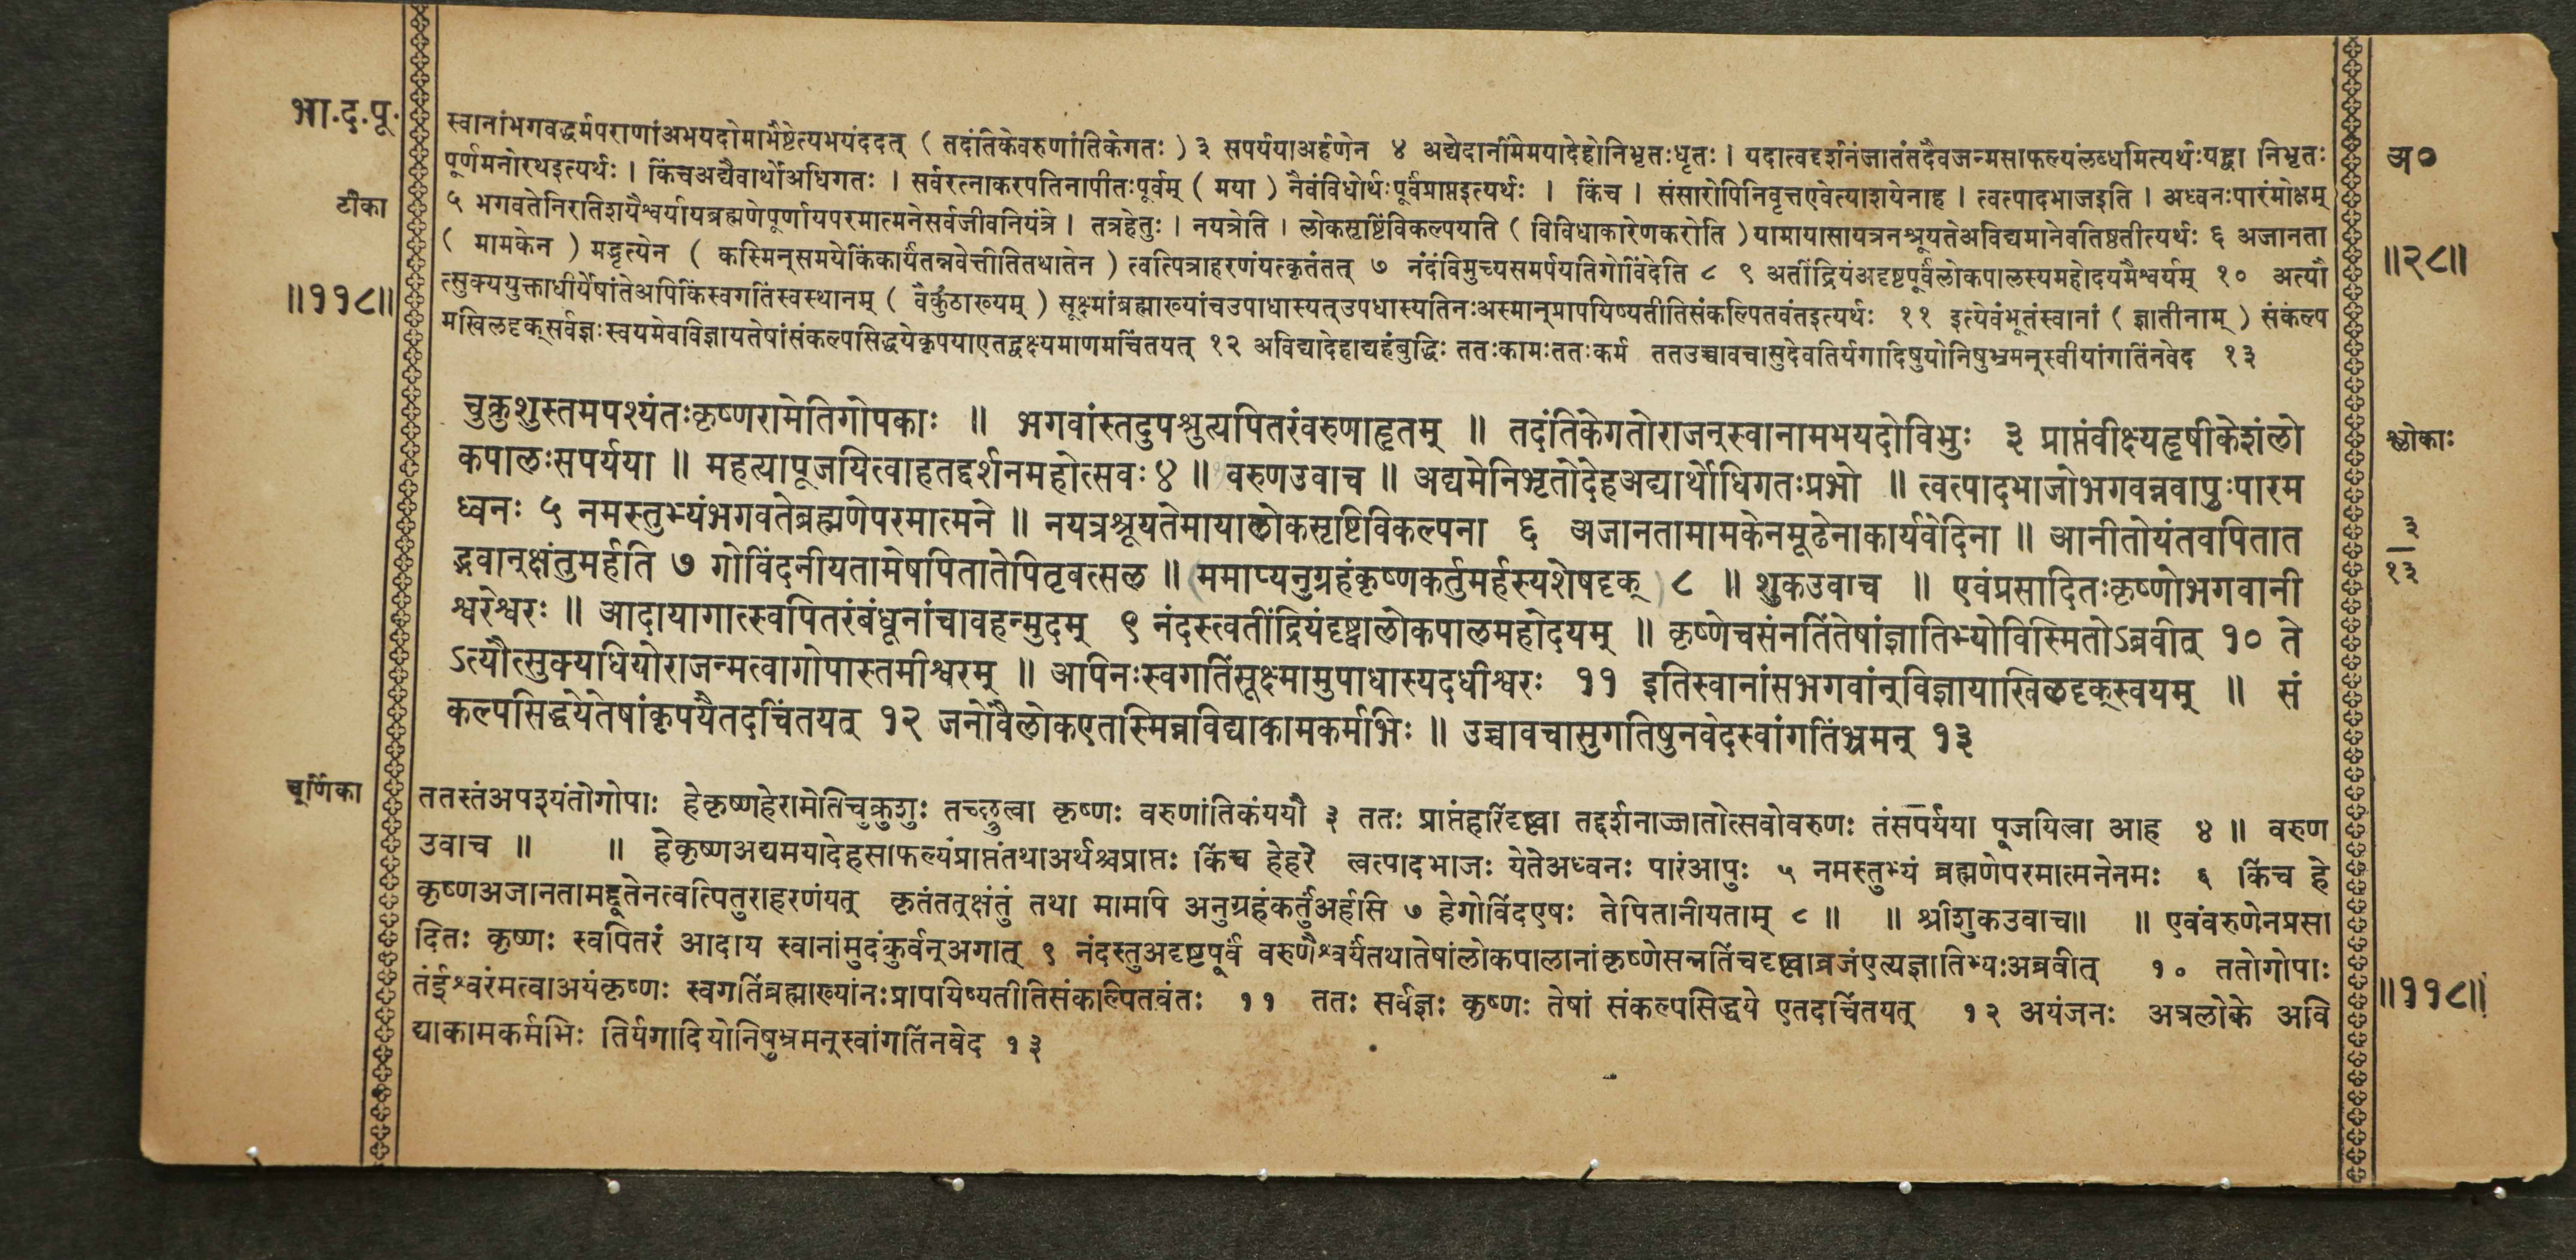 भा.द.पू.
टीका
॥११८॥
स्वानांभगवद्धर्मपराणांअभयदोमाभैष्टेत्यभयंददत् ( तदंतिकेवरुणांतिकेगतः ) ३ सपर्ययाअर्हणेन ४ अद्येदानींमेमयादेहोनिभृतःधृतः । यदात्वद्दर्शनंजातंतदैवजन्मसाफल्यंलब्धमित्यर्थःयद्वा निभृतः
पूर्णमनोरथइत्यर्थः । किंचअद्यैवार्थोअधिगतः । सर्वरत्नाकरपतिनापीतःपूर्वम् ( मया ) नैवंविधोर्थःपूर्वंप्राप्तइत्यर्थः । किंच । संसारोपिनिवृत्तएवेत्याशयेनाह । त्वत्पादभाजइति । अध्वनःपारंमोक्षम्
५ भगवतेनिरतिशयैश्वर्यायब्रह्मणेपूर्णायपरमात्मनेसर्वजीवनियंत्रे । तत्रहेतुः । नयत्रेति । लोकसृष्टिंविकल्पयति ( विविधाकारेणकरोति ) यामायासायत्रनश्रूयतेअविद्यमानेवतिष्ठतीत्यर्थः ६ अजानता
( मामकेन ) मद्भृत्येन ( कस्मिन्समयेकिंकार्यंतन्नवेत्तीतितथातेन ) त्वत्पित्राहरणंयत्कृतंतत् ७ नंदंविमुच्यसमर्पयतिगोविंदेति ८ ९ अतींद्रियंअदृष्टपूर्वंलोकपालस्यमहोदयमैश्वर्यम् १० अत्यौ
त्सुक्ययुक्ताधीर्येषांतेअपिकिंस्वगतिंस्वस्थानम् ( वैकुंठाख्यम् ) सूक्ष्मांब्रह्माख्यांचउपाधास्यत्उपधास्यतिनःअस्मान्प्रापयिष्यतीतिसंकल्पितवंतइत्यर्थः ११ इत्येवंभूतंस्वानां ( ज्ञातीनाम् ) संकल्प
मखिलदृक्सर्वज्ञःस्वयमेवविज्ञायतेषांसंकल्पसिद्धयेकृपयाएतद्वक्ष्यमाणमचिंतयत् १२ अविद्यादेहाद्यहंबुद्धिः ततःकामःततःकर्म ततउच्चावचासुदेवतिर्यगादिषुयोनिषुभ्रमन्स्वीयांगतिंनवेद १३
चुक्रुशुस्तमपश्यंतःकृष्णरामेतिगोपकाः ॥ भगवांस्तदुपश्रुत्यपितरंवरुणाहृतम् ॥ तदंतिकेगतोराजन्स्वानामभयदोविभुः ३ प्राप्तंवीक्ष्यहृषीकेशंलो
कपालःसपर्यया ॥ महत्यापूजयित्वाहतद्दर्शनमहोत्सवः ४ ॥ वरुणउवाच ॥ अद्यमेनिभृतोदेहअद्यार्थोधिगतःप्रभो ॥ त्वत्पादभाजोभगवन्नवापुःपारम
ध्वनः ५ नमस्तुभ्यंभगवतेब्रह्मणेपरमात्मने ॥ नयत्रश्रूयतेमायालोकसृष्टिविकल्पना ६ अजानतामामकेनमूढेनाकार्यवेदिना ॥ आनीतोयंतवपितात
द्भवान्क्षंतुमर्हति ७ गोविंदनीयतामेषपितातेपितृवत्सल ॥ (ममाप्यनुग्रहंकृष्णकर्तुमर्हस्यशेषदृक्) ८ ॥ शुकउवाच ॥ एवंप्रसादितःकृष्णोभगवानी
श्वरेश्वरः ॥ आदायागात्स्वपितरंबंधूनांचावहन्मुदम् ९ नंदस्त्वतींद्रियंदृष्ट्वालोकपालमहोदयम् ॥ कृष्णेचसंनतिंतेषांज्ञातिभ्योविस्मितोऽब्रवीत् १० ते
ऽत्यौत्सुक्यधियोराजन्मत्वागोपास्तमीश्वरम् ॥ अपिनःस्वगतिंसूक्ष्मामुपाधास्यदधीश्वरः ११ इतिस्वानांसभगवांन्विज्ञायाखिलदृक्स्वयम् ॥ सं
कल्पसिद्धयेतेषांकृपयैतदचिंतयत् १२ जनोवैलोकएतस्मिन्नविद्याकामकर्मभिः ॥ उच्चावचासुगतिषुनवेदस्वांगतिंभ्रमन् १३
चूर्णिका
ततस्तंअपश्यंतोगोपाः हेकृष्णहेरामेतिचुक्रुशुः तच्छ्रुत्वा कृष्णः वरुणांतिकंययौ ३ ततः प्राप्तंहरिंदृष्ट्वा तद्दर्शनाज्जातोत्सवोवरुणः तंसपर्यया पूजयित्वा आह ४ ॥ वरुण
उवाच ॥ ॥ हेकृष्णअद्यमयादेहसाफल्यंप्राप्तंतथाअर्थश्चप्राप्तः किंच हेहरे त्वत्पादभाजः येतेअध्वनः पारंआपुः ५ नमस्तुभ्यं ब्रह्मणेपरमात्मनेनमः ६ किंच हे
कृष्णअजानतामद्दूतेनत्वत्पितुराहरणंयत् कृतंतत्क्षंतुं तथा मामपि अनुग्रहंकर्तुंअर्हसि ७ हेगोविंदएषः तेपितानीयताम् ८ ॥ ॥ श्रीशुकउवाच॥ ॥ एवंवरुणेनप्रसा
दितः कृष्णः स्वपितरं आदाय स्वानांमुदंकुर्वन्अगात् ९ नंदस्तुअदृष्टपूर्वं वरुणैश्वर्यंतथातेषांलोकपालानांकृष्णेसन्नतिंचदृष्ट्वाव्रजंएत्यज्ञातिभ्यःअब्रवीत् १० ततोगोपाः
तंईश्वरंमत्वाअयंकृष्णः स्वगतिंब्रह्माख्यांनःप्रापयिष्यतीतिसंकल्पितवंतः ११ ततः सर्वज्ञः कृष्णः तेषां संकल्पसिद्धये एतदचिंतयत् १२ अयंजनः अत्रलोके अवि
द्याकामकर्मभिः तिर्यगादियोनिषुभ्रमन्स्वांगतिंनवेद १३
अ०
॥२८॥
श्लोकाः
३
१३
॥११८॥